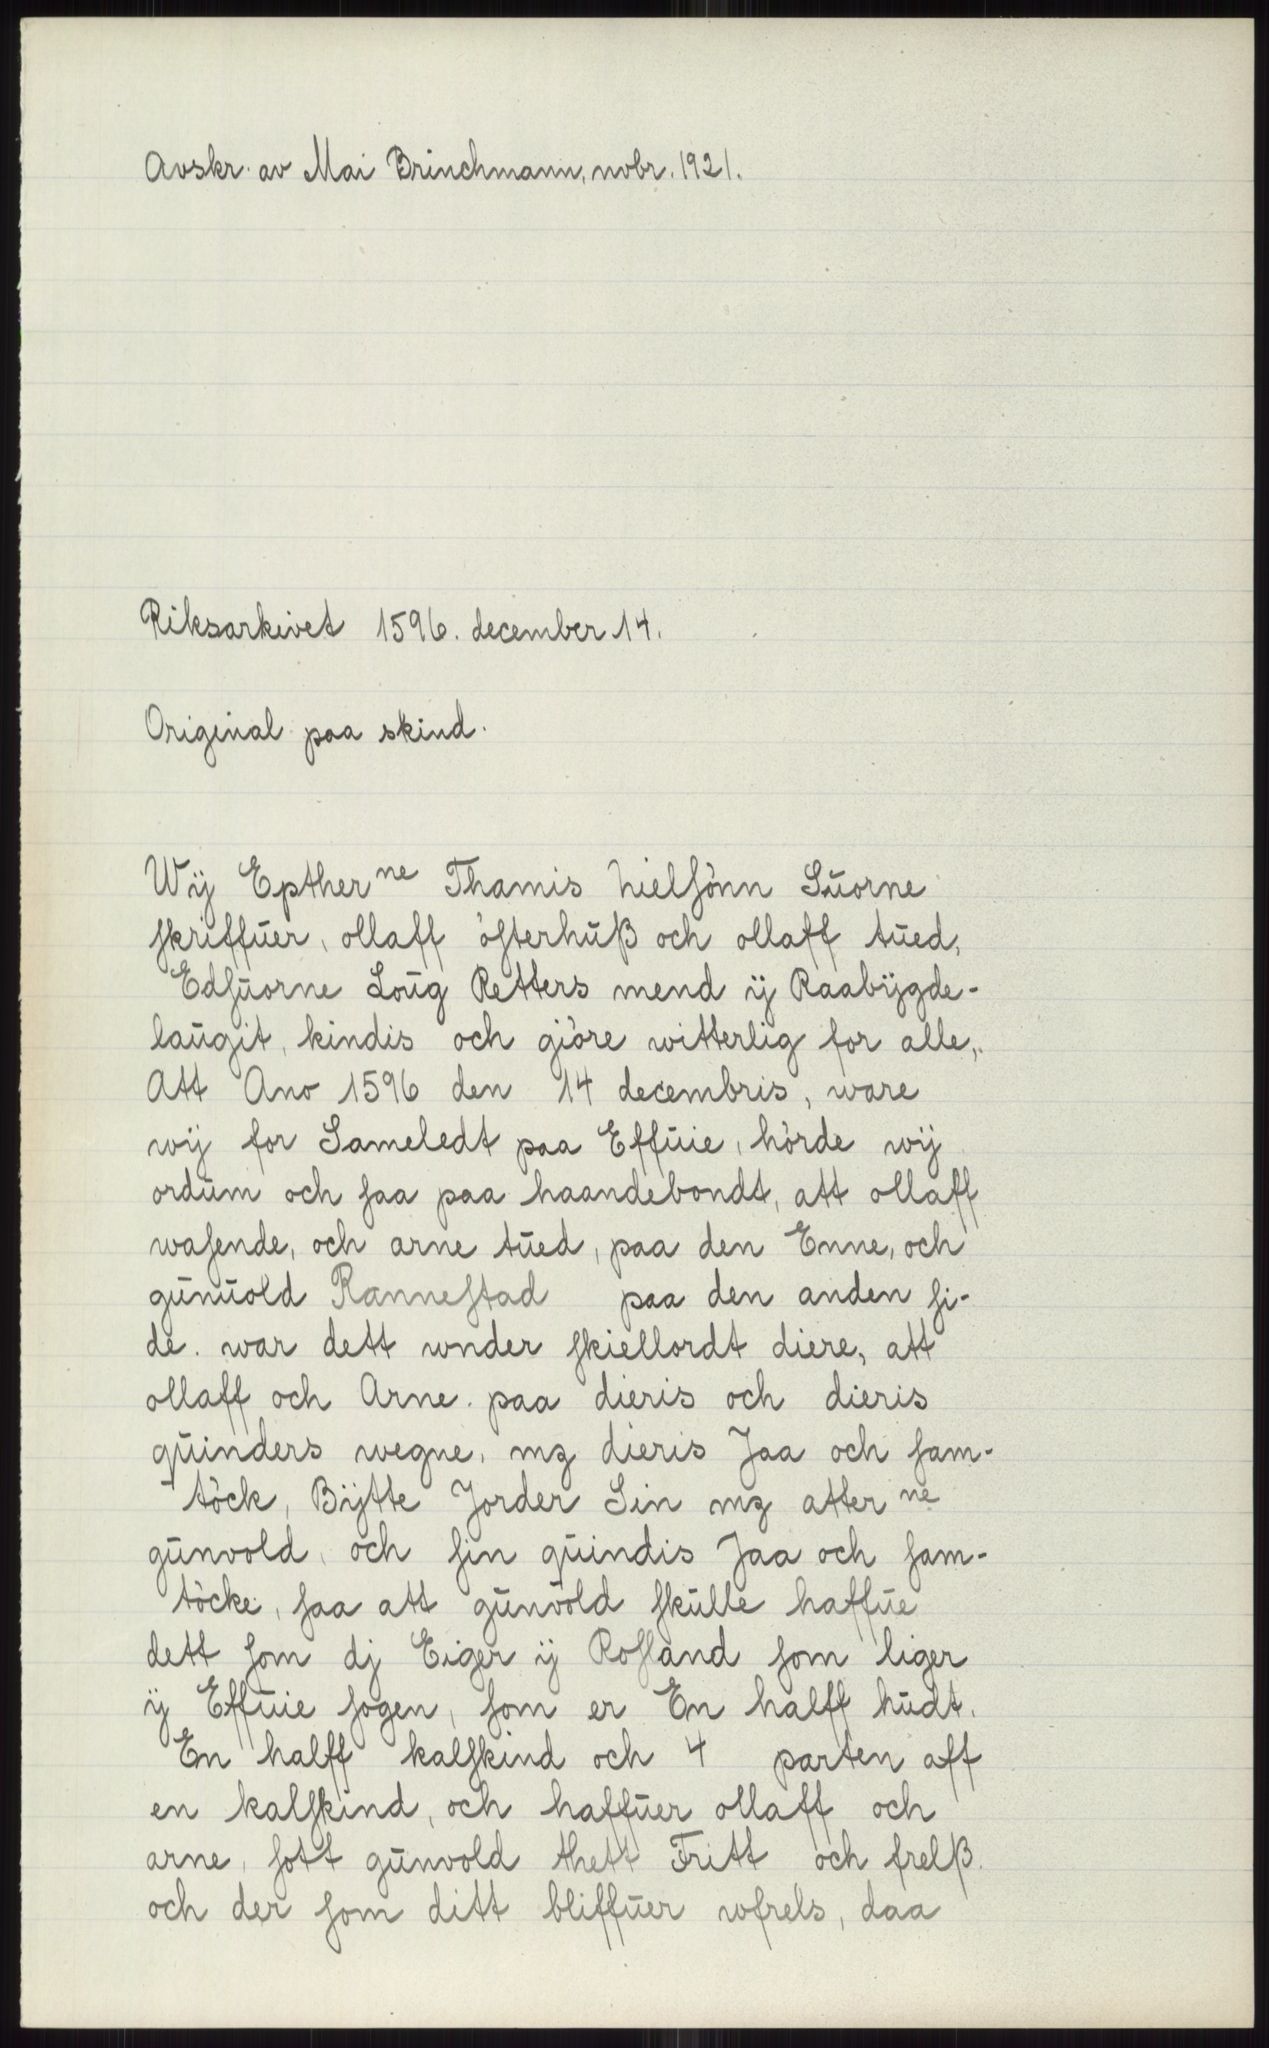 Avskr. av Mai Brinchmann, nvbr. 1921.
Riksarkivet 1596. december 14.
Original paa skind.
Wÿ Epther ne Thamis Nielsönn Sůorne
skriffůer, ollaff östterhůß och ollaff tůed,
Edsůorne Loůg Retters mend ÿ Raabÿgde-
laůgit, kindis och giöre witterlig for alle,
Att Ano 1596 den 14 decembris, ware
wÿ for Sameledt paa Effůie, hörde wÿ
ordům och saa paa haandebondt, att ollaff
wasende, och arne tůed, paa den Enne, och
gůnůold Rannestad paa den anden si-
de. war dett wnder skiellordt diere, att
ollaff och Arne. paa dieris och dieris
qůinders wegne, mz dieris Jaa och sam-
töck, Bÿtte Jorder Sin mz atter ne
gůnvold, och sin qůindis Jaa och sam-
töcke, saa att gůnvold skůlle haffůe
dett som dj Eiger ÿ Rosland som liger
ÿ Effůie sogen, som er En halff hůdt.
En halff kalskind och 4 parten aff
en kalskind, och haffůer ollaff och
arne, sott gůnvold thett Fritt och frelß.
och der som ditt bliffůer wfrels, daa